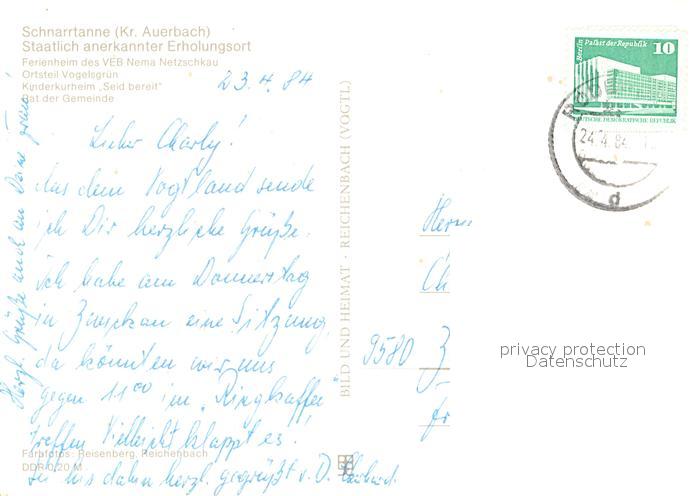 Schnarrtanne (Kr. Auerbach)
Staatlich anerkannter Erholungsort
Ferienheim des VEB Nema Netzschkau
Ortsteil Vogelsgrün
Kinderkurheim „Seid bereit"
Rat der Gemeinde
23.4.84
Lieber Charly!
Aus dem Vogtland sende
ich Dir herzliche Grüße.
Ich habe am Donnerstag
in Zwickau eine Sitzung,
da könnten wir uns
gegen 11⁰⁰ im „Ringkaffee"
treffen. Vielleicht klappt es.
Sei bis dahin herzl. gegrüßt v. D.
Herzl. Grüße auch an Deine
Farbfotos: Reisenberg, Reichenbach
DDR 0,20 M
BILD UND HEIMAT · REICHENBACH (VOGTL)
Berlin Palast der Republik
10
DEUTSCHE DEMOKRATISCHE REPUBLIK
24.4.84
d
Herrn
Ch
9580 Z
privacy protection
Datenschutz